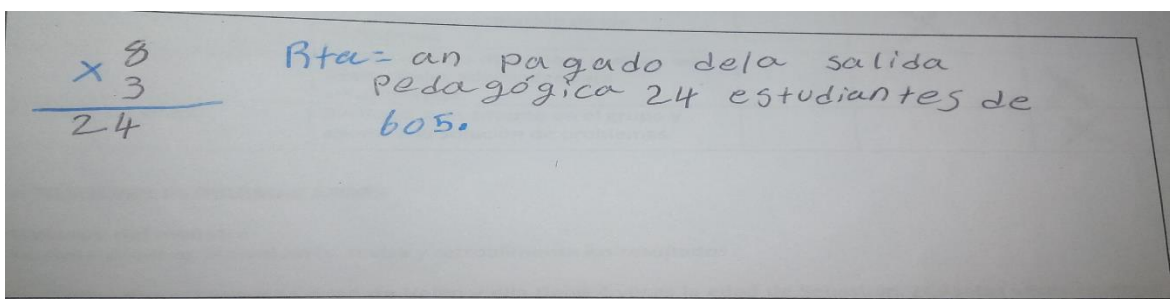 8
x 3
24
Rta= an pagado dela salida
pedagógica 24 estudiantes de
605.